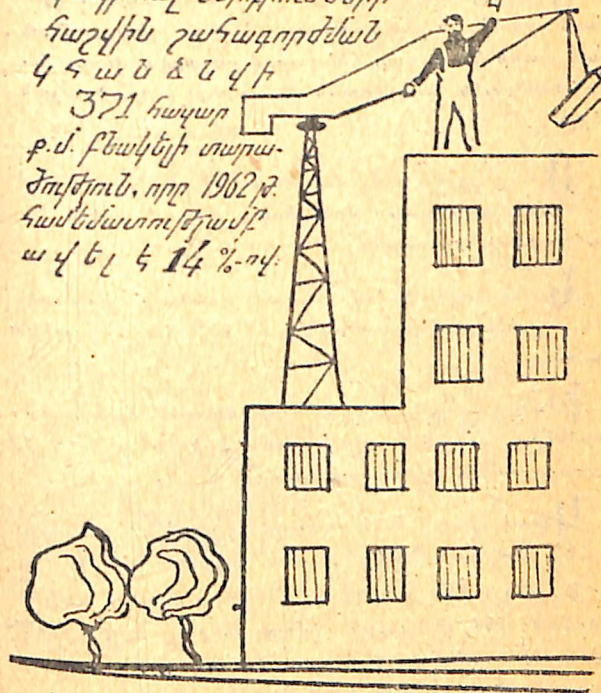 հաշվին շահագործման
կհանձնվի
371 հազար
ք.մ. բնակելի տարա-
ծություն, որը 1962թ.
համեմատությամբ
ավել է 14 %-ով: